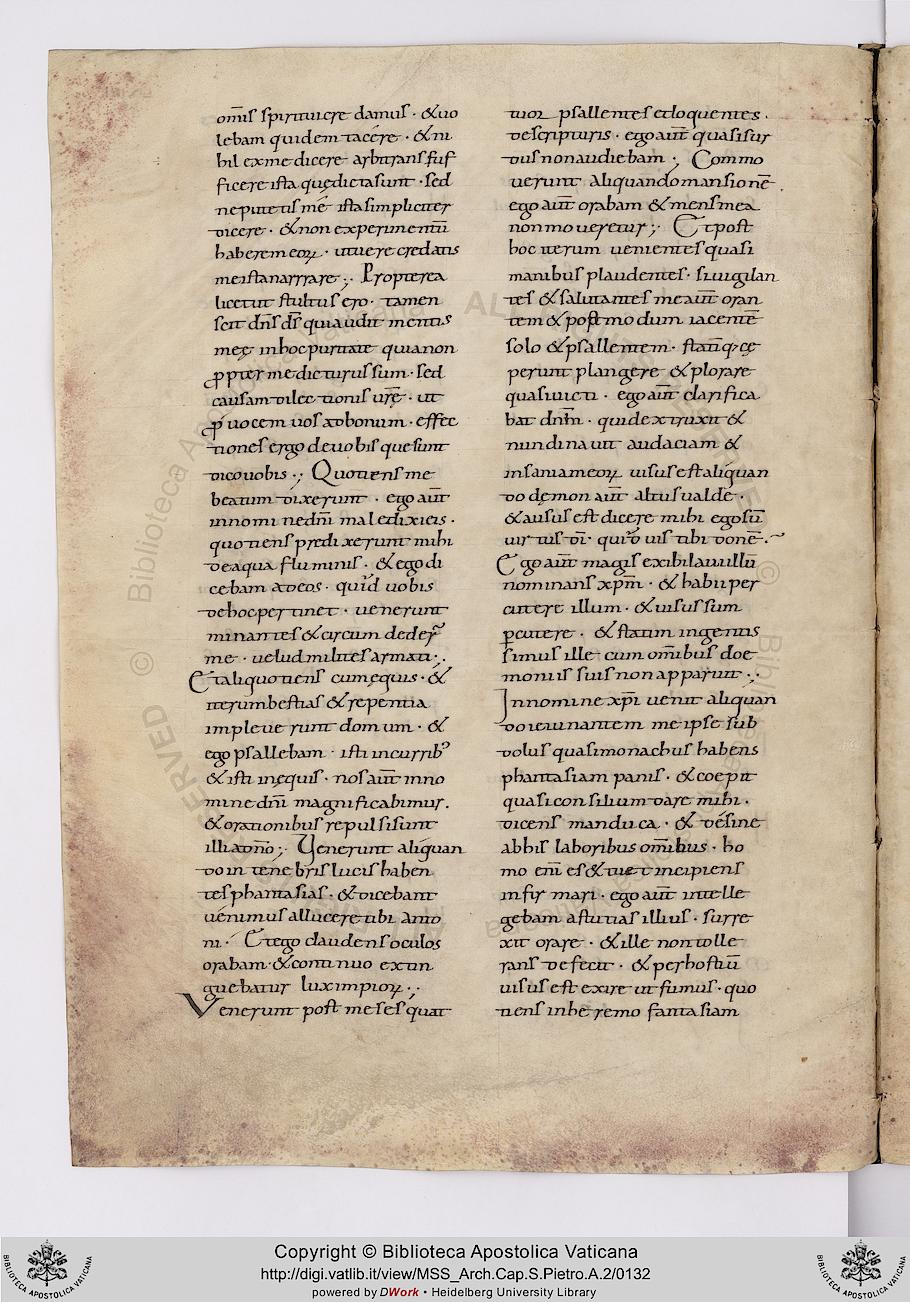 om̅s spiritui cre damus · & uo
lebam quidem tacére · & ni
hil ex me dicere arbitrans suf
ficere ista quę dicta sunt · sed
ne putetis mé ista simpliciter
dicere · & non experimentū
haberem eoꝝ · ut uere credatis
me ista narrare ;· Propterea
licet ut stultus ero · tamen
scit dn̅s d̅s qui audit mentis
meę in hoc puritate quia non
ꝓpter me dicturus sum · sed
causam dilectionis ur̅ę · ut
ꝓuocem uos ad bonum · effec
tiones ergo de uobis que sunt
dico uobis ·; Quotiens me
beatum dixerunt · ego aut̅
in nomine dn̅i maledixi eis ·
quotiens predixerunt mihi
de aqua fluminis · & ego di
cebam ad eos · quid uobis
de hoc pertinet · uenerunt
minantes & circum deder̅
me · uelud milites armati ·.
Et aliquotiens cum ęquis · &
iterum bestias & repentia
impleuerunt domum · &
ego psallebam · isti in curribꝰ
& isti in ęquis · nos aut̅ in no
mine dn̅i magnificabimur .
& orationibus repulsi sunt
illi a dn̅o ;· Uenerunt aliquan
do in tenebris lucis haben
tes phantasias · & dicebant
uenimus allucere tibi anto
ni · Et ego claudens oculos
orabam · & continuo extin
guebatur lux impioꝝ ·.
Venerunt post meses quat
tuor psallentes et loquentes .
de scripturis · ego aut̅ quasi sur
dus non audiebam ·; Commo
uerunt aliquando mansionē .
ego aut̅ orabam & mens mea
non moueretur ;· Et post
hoc iterum uenientes quasi
manibus plaudentes · si uigilan
tes & salutantes me aut̅ oran
tem & post modum iacentē
solo & psallentem · statīq; cę
perunt plangere & plorare
quasi uicti · ego aut̅ clarifica
bat dn̅m · qui dextruxit &
nundinauit audaciam &
insaniam eoꝝ uisus est aliquan
do dęmon aut̅ altus ualde ·
& ausus est dicere mihi ego sū
uirtus d̅i · quid uis tibi donē ·
Ego aut̅ magis exibilaui illū
nominans xp̅m · & habii per
cutere illum · & uisus sum
ꝑcutere · & statim ingentis
simus ille cum om̅ibus doe
moniis suis non apparuit ·.
In nomine xp̅i uenit aliquan
do ieiunantem me ipse sub
dolus quasi monachus habens
phantasiam panis · & coepit
quasi consilium dare mihi ·
dicens manduca · & désine
ab his laboribus om̅ibus · ho
mo en̅i es & tu et incipiens
infirmari · ego aut̅ intelle
gebam astutias illius · surre
xit orare · & ille non tolle
rans defecit · & per hostiū
uisus est exire ut fumus · quo
tiens in heremo fantasiam
Copyright © Biblioteca Apostolica Vaticana
http://digi.vatlib.it/view/MSS_Arch.Cap.S.Pietro.A.2/0132
powered by DWork • Heidelberg University Library